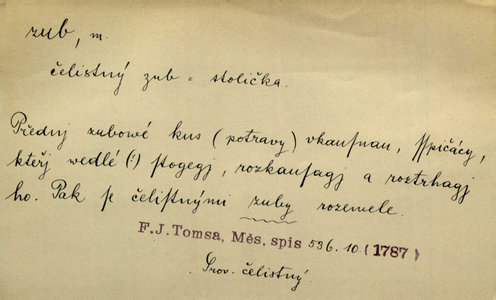 zub, m.
čelistný zub = stolička.
Přednj zubowé kus (potravy) vkaufnau, ſſpičácy,
kteřj wedlé (!) ſtogegj, rozkauſagj a roztrhagj
ho. Pak ſe čeliſtnými zuby rozemele.
F. J. Tomsa, Měs. spis 536. 10. (1787)
Srov. čelistný.